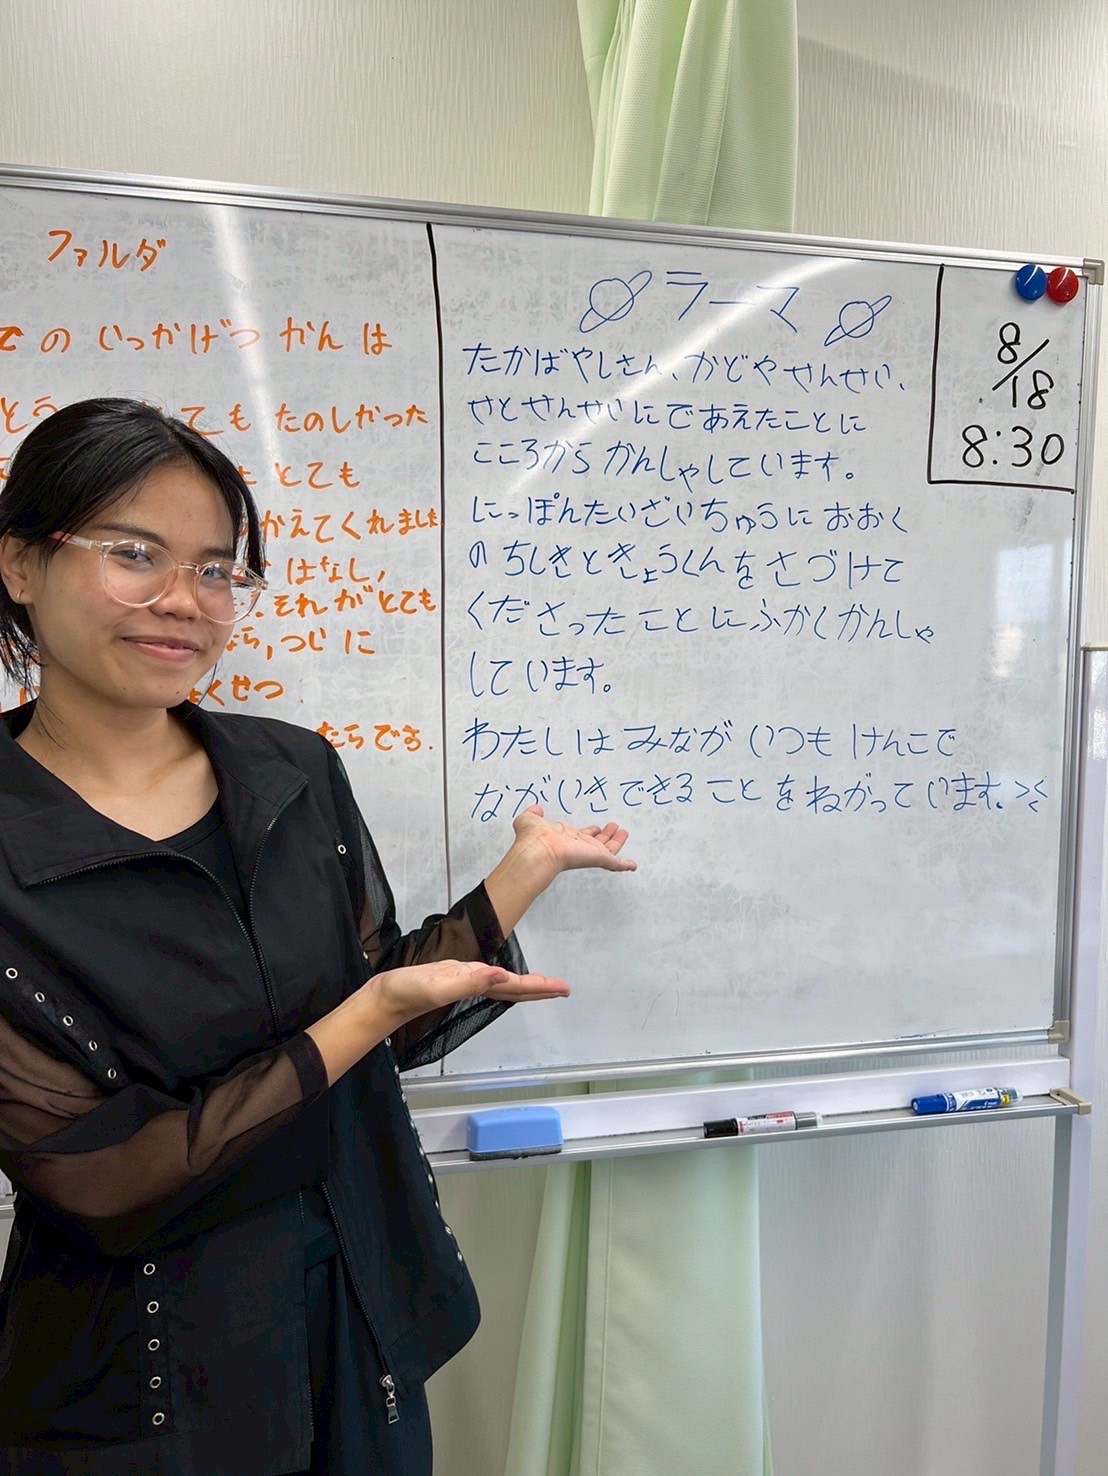 ファルダ
の いっかげつ かん は
ても たのしかった
とても
かえてくれました
はなし,
それ が とても
なら, つじ に
くせつ
たらです.
ラーマ
たかばやしさん、かどや せんせい、
せと せんせい に であえたことに
こころから かんしゃしています。
にっぽんたいざいちゅうに おおく
の ちしきと きょうくんを さづけて
くださったことに ふかく かんしゃ
しています。
わたしは みなが いつも けんこで
ながいきできる ことを ねがっています. ><
8/18
8:30